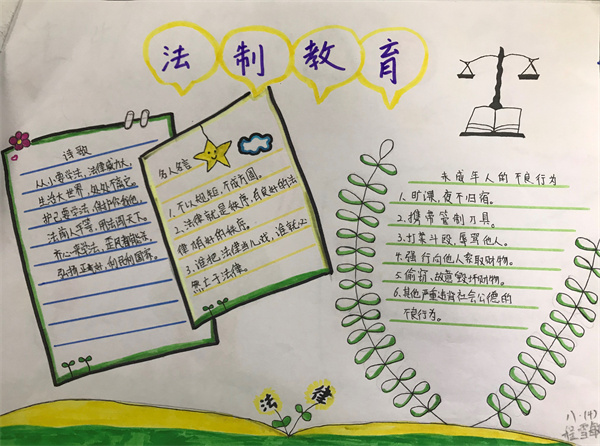 法制教育
诗歌
从小要学法,法律威力大。
生活大世界,处处有它。
护己要学法,保护你我他。
法前人平等,用法闯天下。
齐心来学法,歪风都能杀。
弘扬正,利民利国家。
名人名言
1.不以规矩,不成方圆。
2.法律就是秩序,有良好的法
律才有好的秩序。
3.谁把法律当儿戏,谁就必
然亡于法律。
未成年人的不良行为
1.旷课、夜不归宿。
2.携带管制刀具。
3.打架斗殴、辱骂他人。
4.强行向他人索取财物。
5.偷窃、故意毁坏财物。
6.其他严重违背社会公德的
不良行为。
法律
八.(4)
程雪